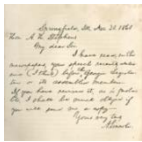 Springfield, Ills. Nov. 30. 1860
Hon. A. H. Stephens
My dear Sir
I have read, in the
newspapers, your speech recently delivered
(I think) before the Georgia Legislature
or its assembled members.
If you have revised it, as is probable
I shall be much obliged if
you will send me a copy.
Yours very truly
A. Lincoln